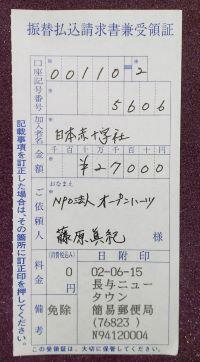 振替払込請求書兼受領証
口座記号番号
00110-2
5606
加入者名
日本赤十字社
金額
千百十万千百十円
¥27000
ご依頼人
おなまえ
NPO法人 オープンハーツ
藤原真紀 様
料金
(消費税込み)
0
円
備考
免除
日附印
02-06-15
長与ニュー
タウン
簡易郵便局
(76823)
N94120004
記載事項を訂正した場合は、その箇所に訂正印を押してください。
この受領証は、大切に保管してください。